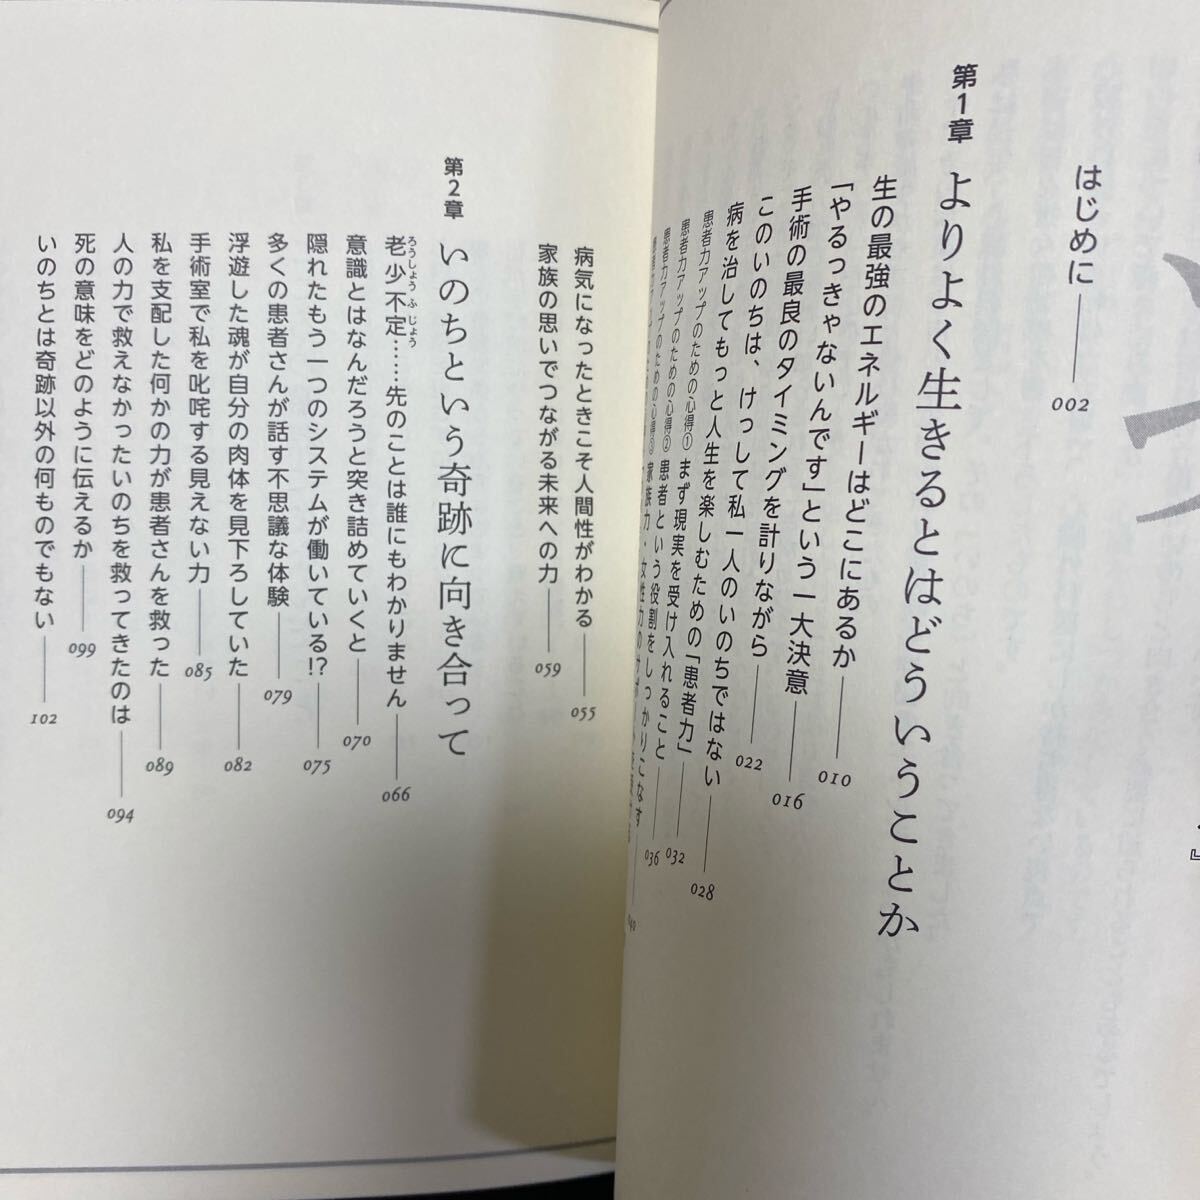 はじめに 002
第1章 よりよく生きるとはどういうことか
生の最強のエネルギーはどこにあるか 010
「やるっきゃないんです」という一大決意 016
手術の最良のタイミングを計りながら 022
このいのちは、けっして私一人のいのちではない 028
病を治してもっと人生を楽しむための「患者力」 032
患者力アップのための心得① まず現実を受け入れること 036
患者力アップのための心得② 患者という役割をしっかりこなす 040
患者力アップのための心得③ 家族力・女性力の
病気になったときこそ人間性がわかる 055
家族の思いでつながる未来への力 059
第2章 いのちという奇跡に向き合って
老少不定……先のことは誰にもわかりません 066
ろうしょうふじょう
意識とはなんだろうと突き詰めていくと 070
隠れたもう一つのシステムが働いている!? 075
多くの患者さんが話す不思議な体験 079
浮遊した魂が自分の肉体を見下ろしていた 082
手術室で私を叱咤する見えない力 085
私を支配した何かの力が患者さんを救った 089
人の力で救えなかったいのちを救ってきたのは 094
死の意味をどのように伝えるか 099
いのちとは奇跡以外の何ものでもない 102